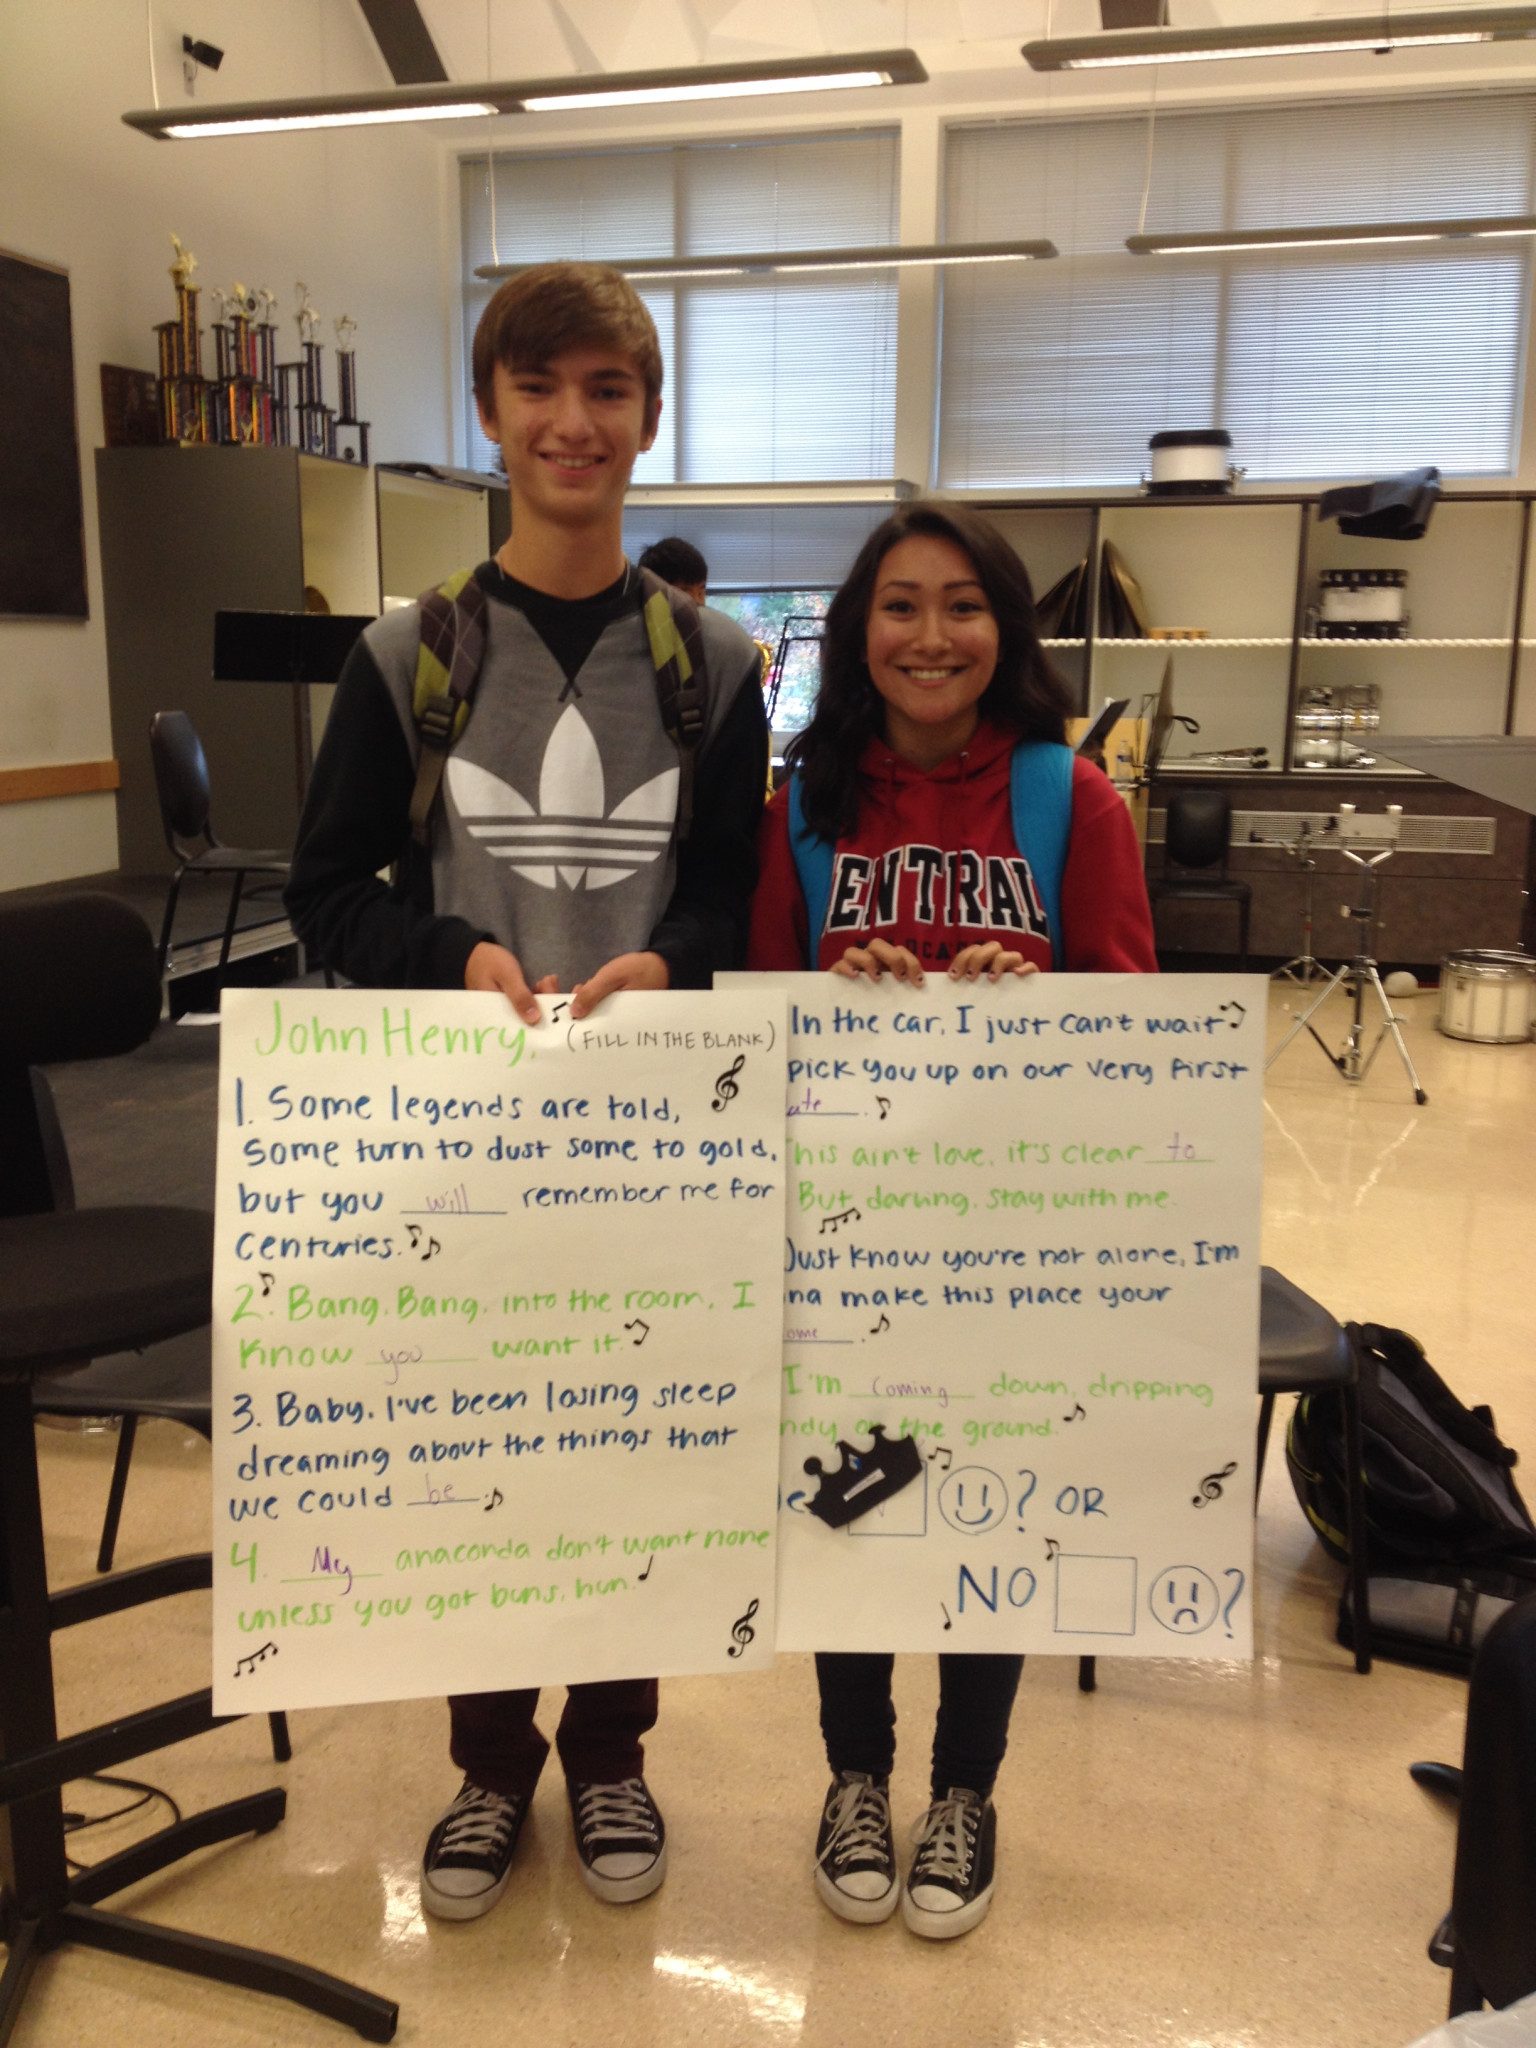 CENTRAL
John Henry,
(FILL IN THE BLANK)
1. Some legends are told,
some turn to dust some to gold,
but you will remember me for
centuries.
2. Bang, Bang, into the room, I
know you want it.
3. Baby, I've been losing sleep
dreaming about the things that
we could be.
4. My anaconda don't want none
unless you got buns, hun.
In the car, I just can't wait
pick you up on our very first
ate.
his ain't love, it's clear to
But darling, stay with me.
Just know you're not alone, I'm
nna make this place your
ome.
I'm coming down, dripping
ndy on the ground.
? OR
NO ?